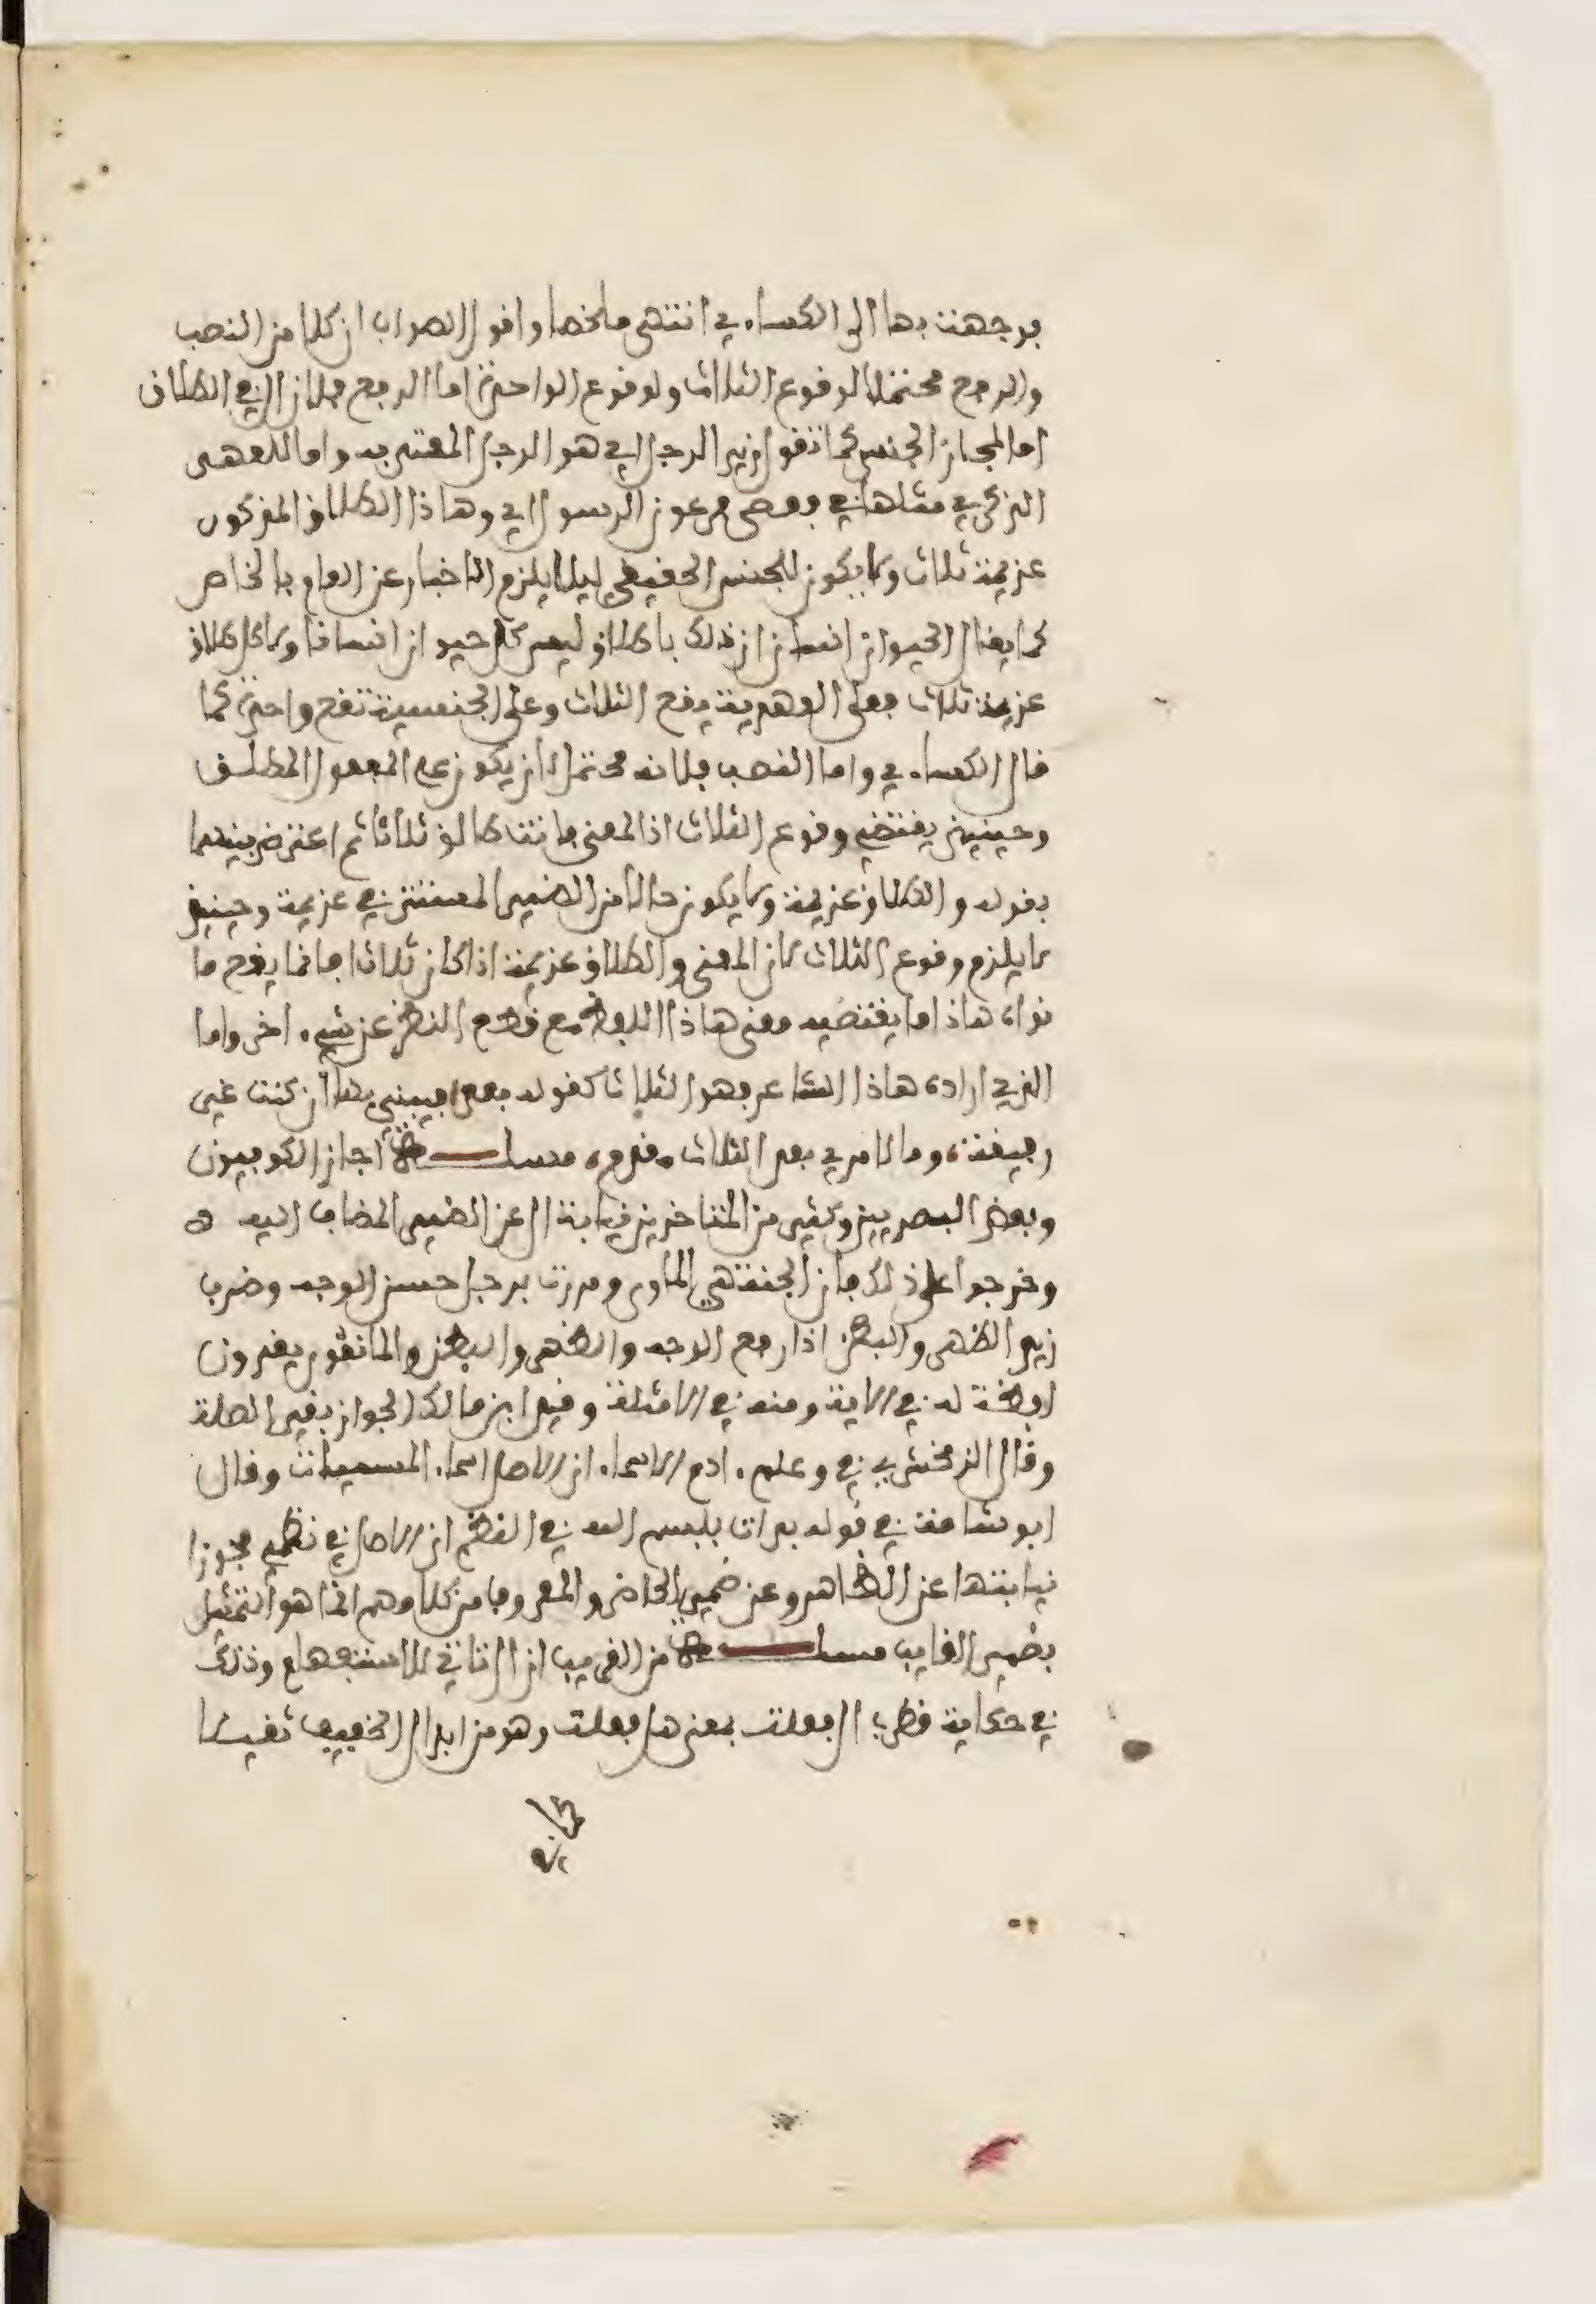 فوجهت بها الى الكساءي انتهى ملخصا واقول الصواب ان كلا من النصب
والرفع محتمل لوقوع الثلاث ولوقوع الواحدة اما الرفع فلان ال في الطلاق
اما لمجاز الجنس كما تقول زيد الرجل اي هو الرجل المعتد به واما للعهد
الذكري مثلها في فعصى فرعون الرسول اي وهاذا الطلاق المذكور
عزيمة ثلاث ولا يكون للجنس الحقيقي ليلا يلزم الاخبار عن العام بالخاص
كما يقال الحيوان انسان ان ذلك باطل اذ ليس كل حيوان انسانا ولا كل طلاق
عزيمة ثلاث فعلى العهدية يقع الثلاث وعلى الجنسية تقع واحدة كما
قال الكساءي واما النصب فلانه محتمل لان يكون على المفعول المطلق
وحينيذ يقتضي وقوع الثلاث اذ المعنى فانت طالق ثلاثا ثم اعترض بينهما
بقوله والطلاق عزيمة ولا يكون حالا من الضمير المستتر في عزيمة وحينيذ
لا يلزم وقوع الثلاث لان المعنى والطلاق عزيمة اذا كان ثلاثا فانما يقع ما
نواه هاذا ما يقتضيه معنى هاذا اللفظ مع قطع النظر عن شيء اخر واما
الذي اراده هاذا الشاعر فهو الثلاث كقوله بعد فبيني بها ان كنت غير
رفيقة وما لامرئ بعد الثلاث مقدم مسالة اجاز الكوفيون
وبعض البصريين وكثير من المتاخرين نيابة ال عن الضمير المضاف اليه
وخرجوا على ذلك فان الجنة هي الماوى ومررت برجل حسن الوجه وضرب
زيد الظهر والبطن اذا رفع الوجه والظهر والبطن والمانعون يقدرون
لفظة له في الاية ومنه في الامثلة وقيد ابن مالك الجواز بغير الصلة
وقال الزمخشري في وعلم ءادم الاسماء ان الاصل اسماء المسميات وقال
ابو شامة في قوله بدات ببسم الله في النظم ان الاصل في نظمي فجوزا
نيابتها عن الظاهر وعن ضمير الحاضر والمعروف من كلامهم انما هو التمثيل
بضمير الغايب مسالة من الغريب ان ال تاتي للاستفهام وذلك
في حكاية قطرب ال فعلت بمعنى هل فعلت وهو من ابدال الخفيف ثقيلا